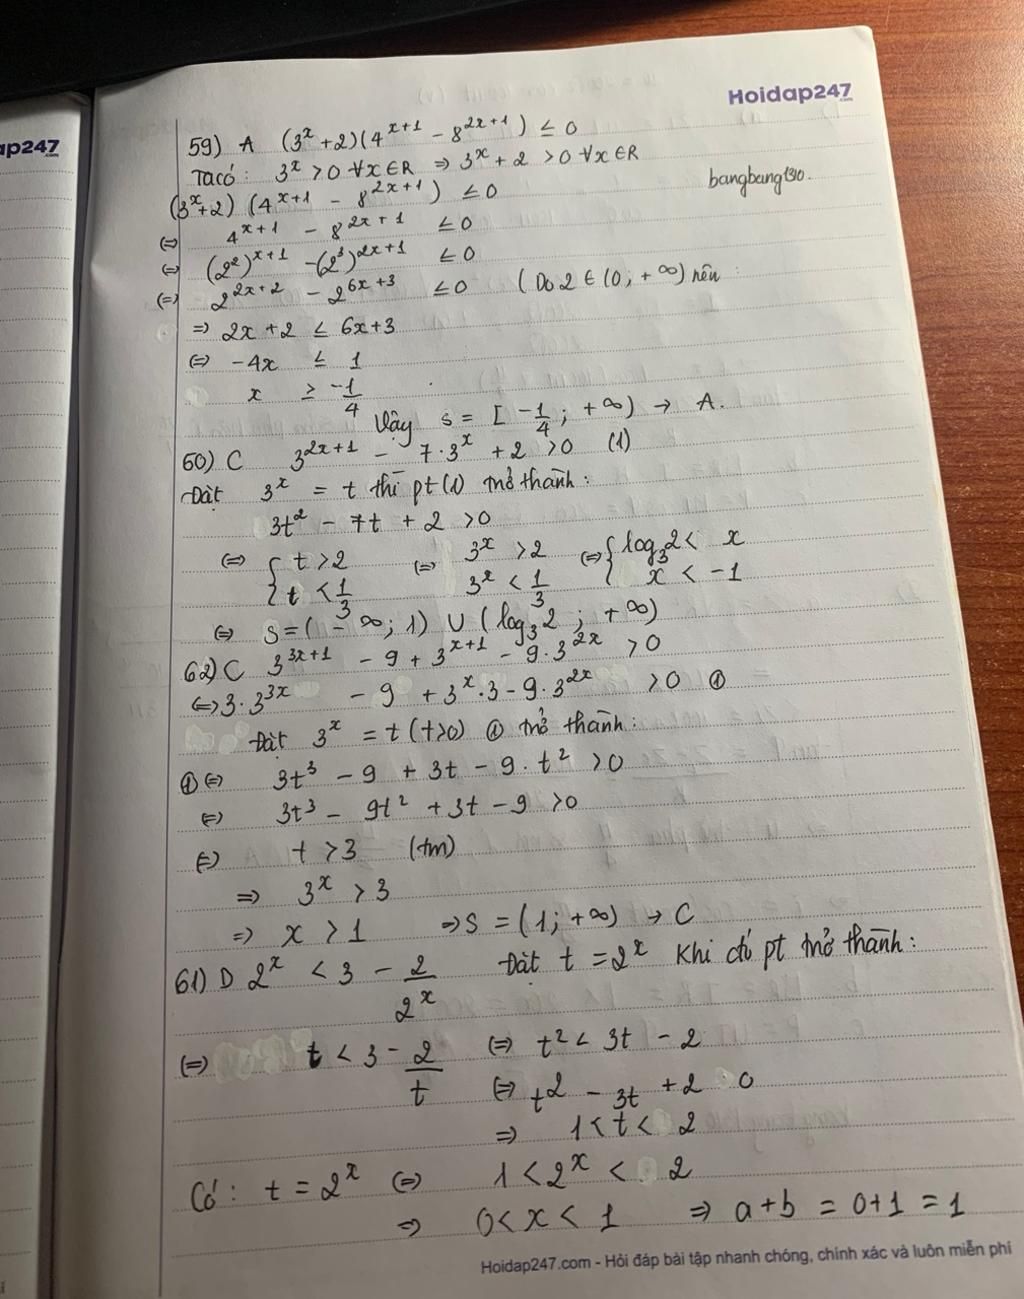 Hoidap247
.com
ap247
.com
59) A (3^x + 2)(4^{x+1} - 8^{2x+1}) ≤ 0
Ta có: 3^x > 0 ∀x∈R ⇒ 3^x + 2 > 0 ∀x∈R
bangbang130.
(3^x+2) (4^{x+1} - 8^{2x+1}) ≤ 0
⇔ 4^{x+1} - 8^{2x+1} ≤ 0
⇔ (2^2)^{x+1} - (2^3)^{2x+1} ≤ 0
⇔ 2^{2x+2} - 2^{6x+3} ≤ 0 (Do 2 ∈ (0; +∞) nên :
⇒ 2x+2 ≤ 6x+3
⇔ -4x ≤ 1
x ≥ -1/4
Vậy S = [-1/4; +∞) → A.
60) C 3^{2x+1} - 7·3^x + 2 > 0 (1)
Đặt 3^x = t thì pt (1) trở thành:
3t^2 - 7t + 2 > 0
⇔ { t > 2 ⇔ 3^x > 2 ⇔ { log_3 2 < x
t < 1/3 3^x < 1/3 x < -1
⇔ S = (-∞; 1) ∪ (log_3 2; +∞)
62) C 3^{3x+1} - 9 + 3^{x+1} - 9·3^{2x} > 0
⇔ 3·3^{3x} - 9 + 3^x·3 - 9·3^{2x} > 0 ①
Đặt 3^x = t (t>0) ① trở thành:
① ⇔ 3t^3 - 9 + 3t - 9·t^2 > 0
⇔ 3t^3 - 9t^2 + 3t - 9 > 0
⇔ t > 3 (tm)
⇒ 3^x > 3
⇒ x > 1 ⇒ S = (1; +∞) → C
61) D 2^x < 3 - 2/2^x Đặt t = 2^x Khi đó pt trở thành:
⇔ t < 3 - 2/t ⇔ t^2 < 3t - 2
⇔ t^2 - 3t + 2 0
⇒ 1 < t < 2
Có: t = 2^x ⇔ 1 < 2^x < 2
⇒ 0 < x < 1 ⇒ a+b = 0+1 = 1
Hoidap247.com - Hỏi đáp bài tập nhanh chóng, chính xác và luôn miễn phí